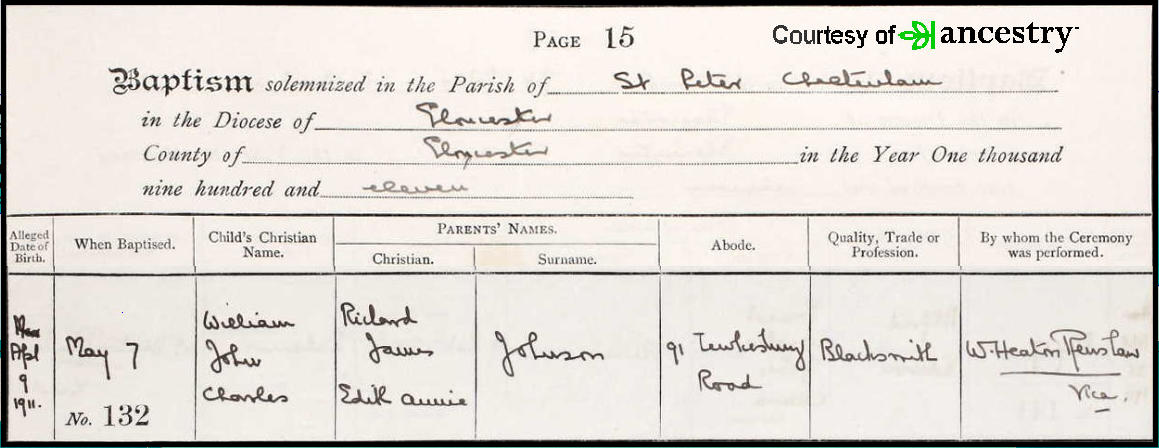 PAGE 15
Courtesy of ancestry
Baptism solemnized in the Parish of St Peter Cheltenham
in the Diocese of Gloucester
County of Gloucester in the Year One thousand
nine hundred and eleven
Alleged Date of Birth.
When Baptised.
Child's Christian Name.
PARENTS' NAMES.
Christian.
Surname.
Abode.
Quality, Trade or Profession.
By whom the Ceremony was performed.
April
9
1911.
May 7
No. 132
William
John
Charles
Richard
James
Edith Annie
Johnson
91 Tewkesbury
Road
Blacksmith
W. Heaton Renshaw
Vice